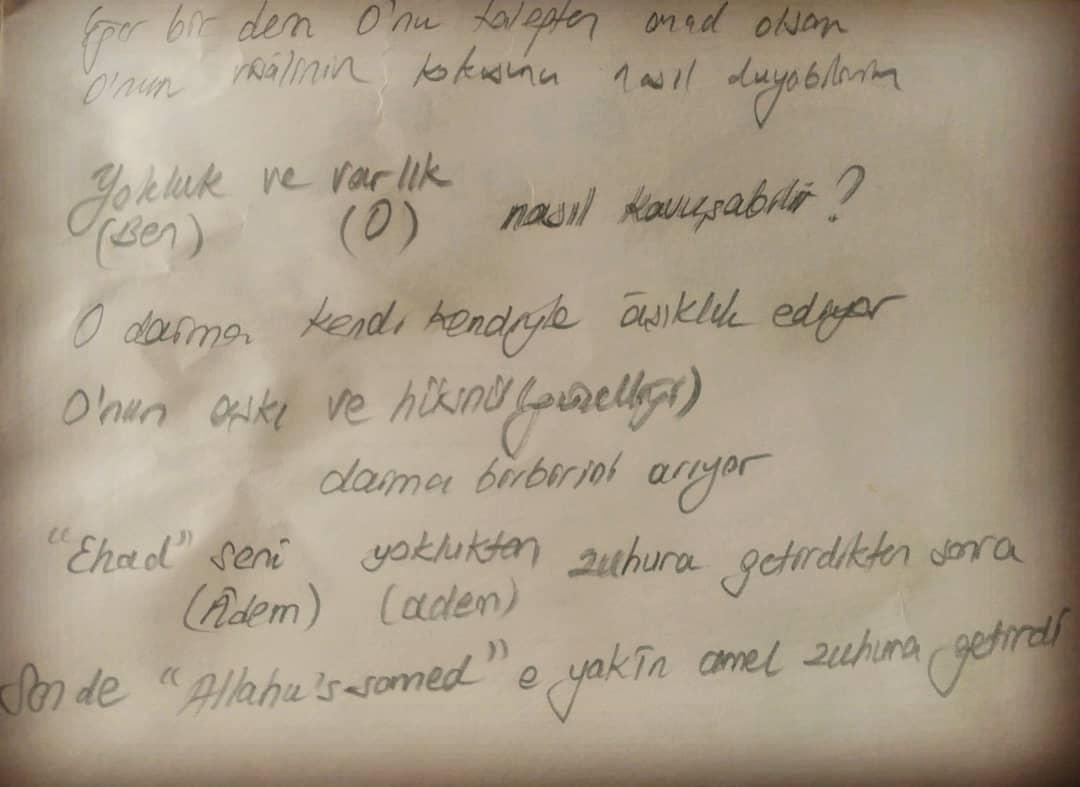 Eğer bir dem O'nu talepten azad olsam
O'nun visâlinin kokusunu nasıl duyabilirim
Yokluk ve varlık nasıl kavuşabilir?
(Ben) (O)
O daima kendi kendiyle âşıklık ediyor
O'nun aşkı ve hüsnü (güzelliği)
daima birbirini arıyor
"Ehad" seni yokluktan zuhura getirdikten sonra
(Âdem) (adem)
Sen de "Allahu's-samed" e yakîn amel zuhura getirdi